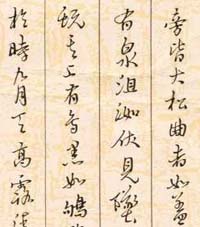 旁皆大松曲者如盖
有泉沮洳伏見墮
蚖其上有鳥黑如鴝
於時九月天高露清